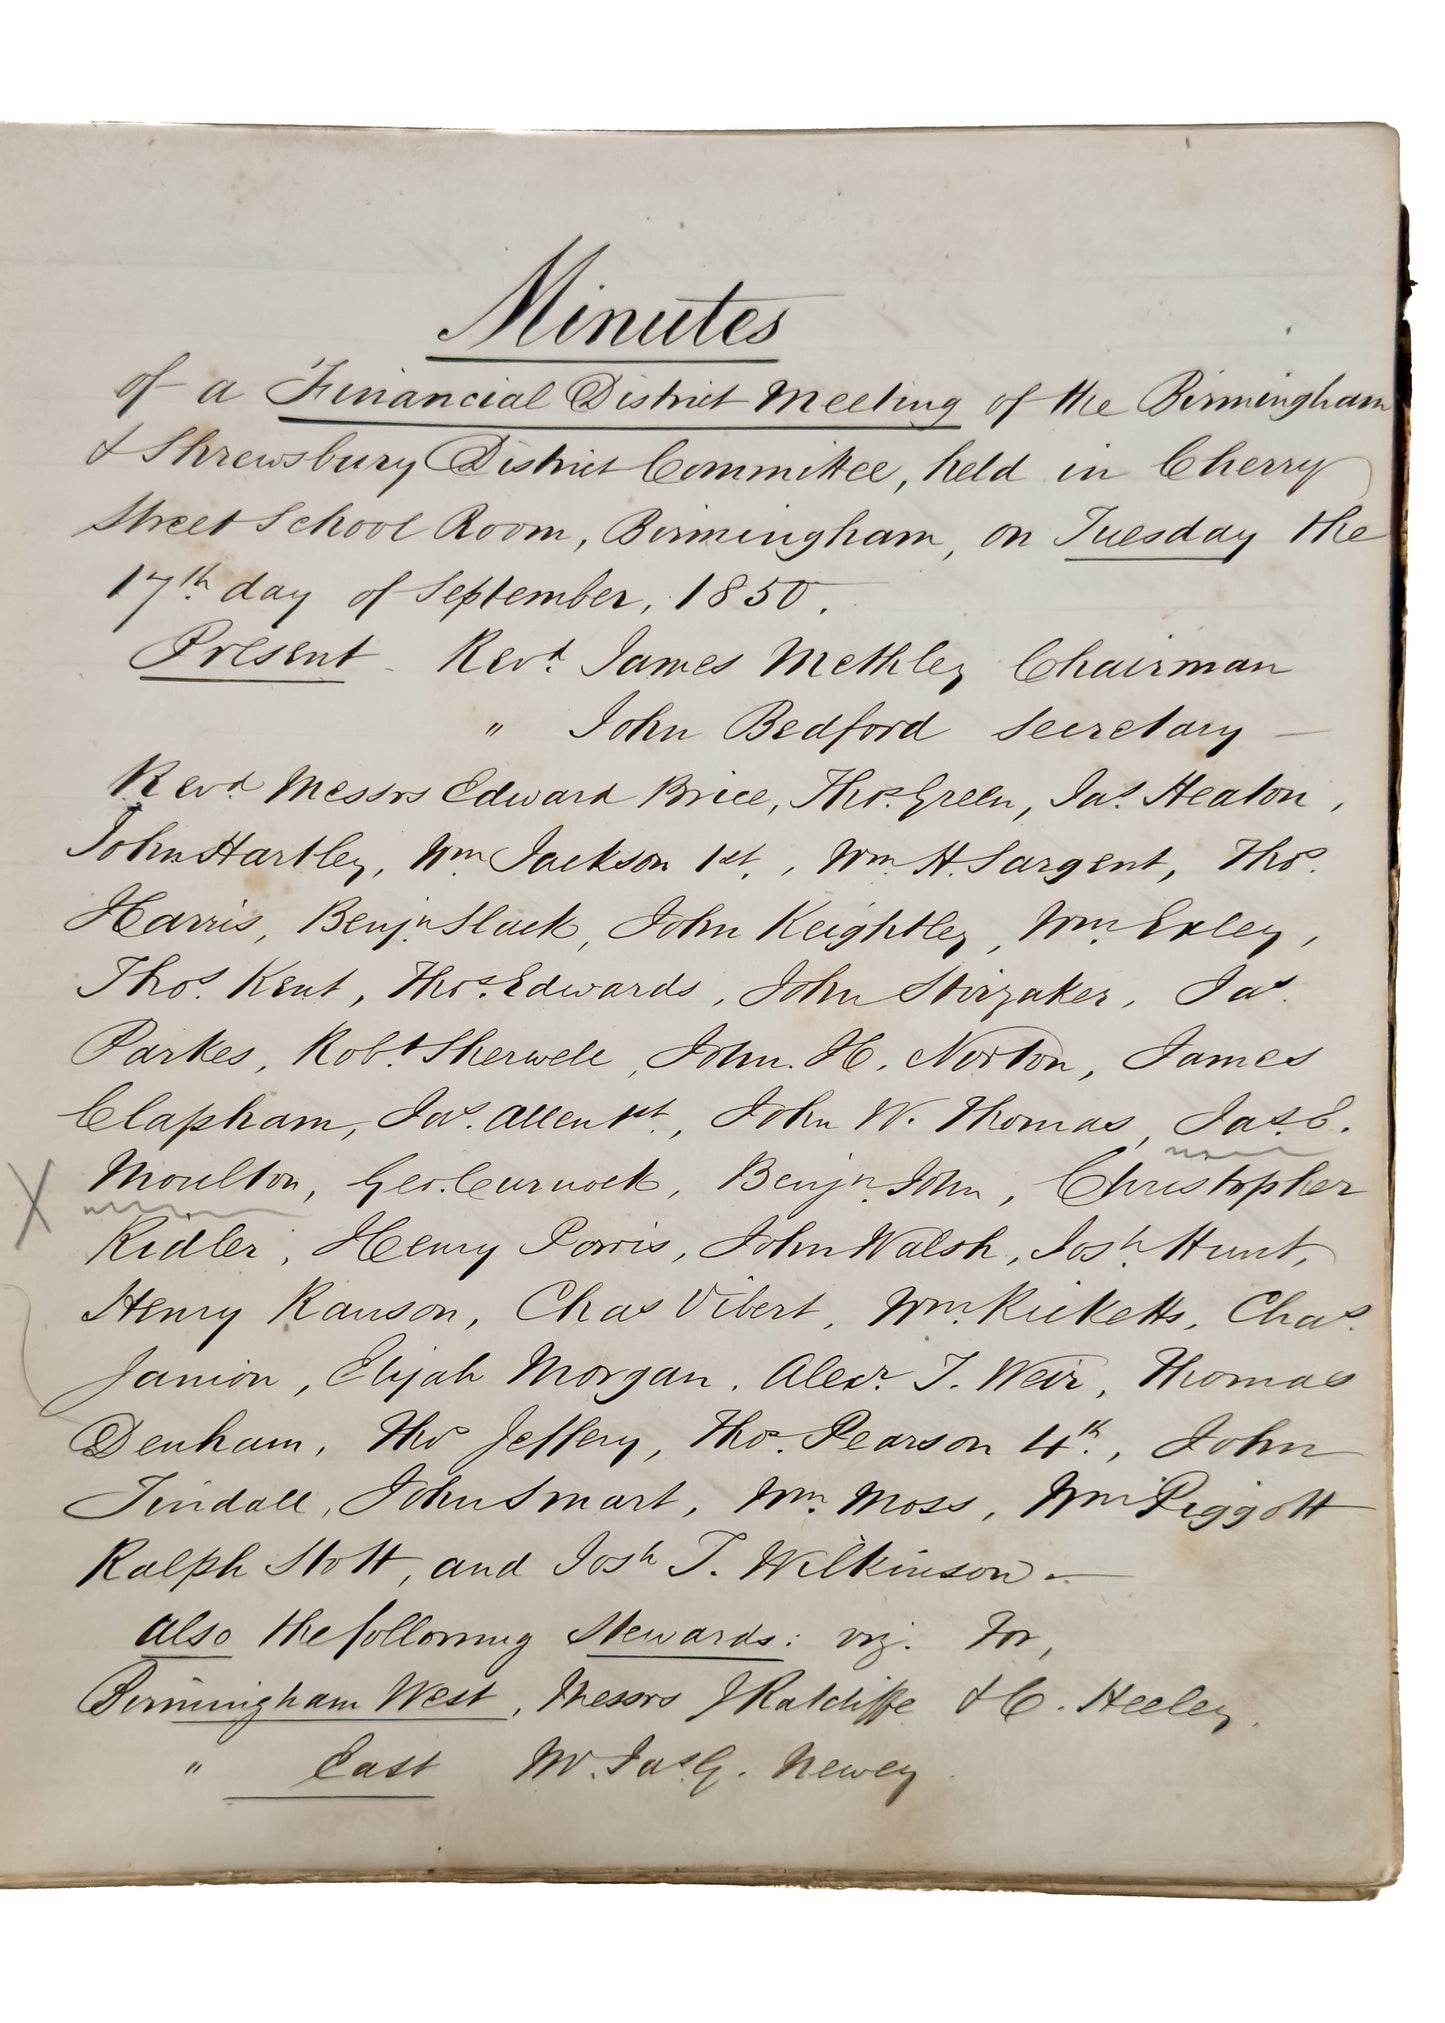 Minutes
of a Financial District Meeting of the Birmingham
& Shrewsbury District Committee, held in Cherry
Street School Room, Birmingham, on Tuesday the
17th. day of September, 1850.
Present - Revd. James Methley Chairman
" John Bedford Secretary -
Revd Messrs Edward Brice, Thos. Green, Jas. Heaton,
John Hartley, Wm. Jackson 1st., Wm. H. Sargent, Thos.
Harris, Benjn. Slack, John Keightley, Wm. Exley,
Thos. Kent, Thos. Edwards, John Stirzaker, Jas.
Parkes, Robt. Sherwell, John. H. Norton, James
Clapham, Jas. Allen 1st., John W. Thomas, Jas. E.
X Moulton, Geo. Curnock, Benjn. John, Christopher
Ridler, Henry Parris, John Walsh, Josh. Hunt,
Henry Ranson, Chas Vibert, Wm. Ricketts, Chas.
Janion, Elijah Morgan, Alexr. T. Weir, Thomas
Denham, Thos Jeffery, Thos. Pearson 4th., John
Tindall, John Smart, Wm. Moss, Wm Piggott
Ralph Stott, and Josh T. Wilkinson. -
Also the following Stewards: viz. For,
Birmingham West, Messrs J Ratcliffe & C. Heeley.
" East Mr. Jas G. Newey.